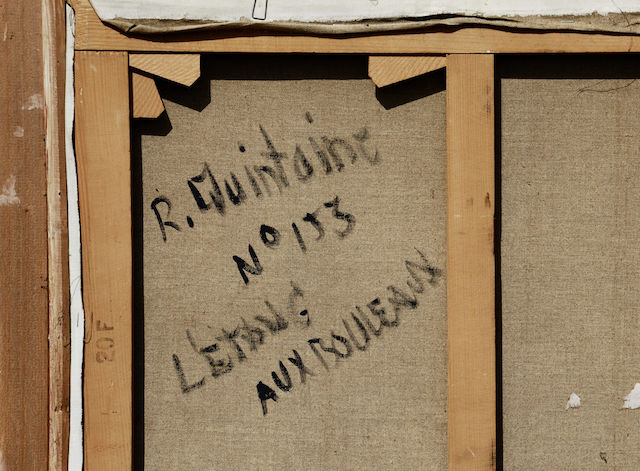 R. Quintaine
N° 153
L'ETANG
AUX BOULEAUX
20F